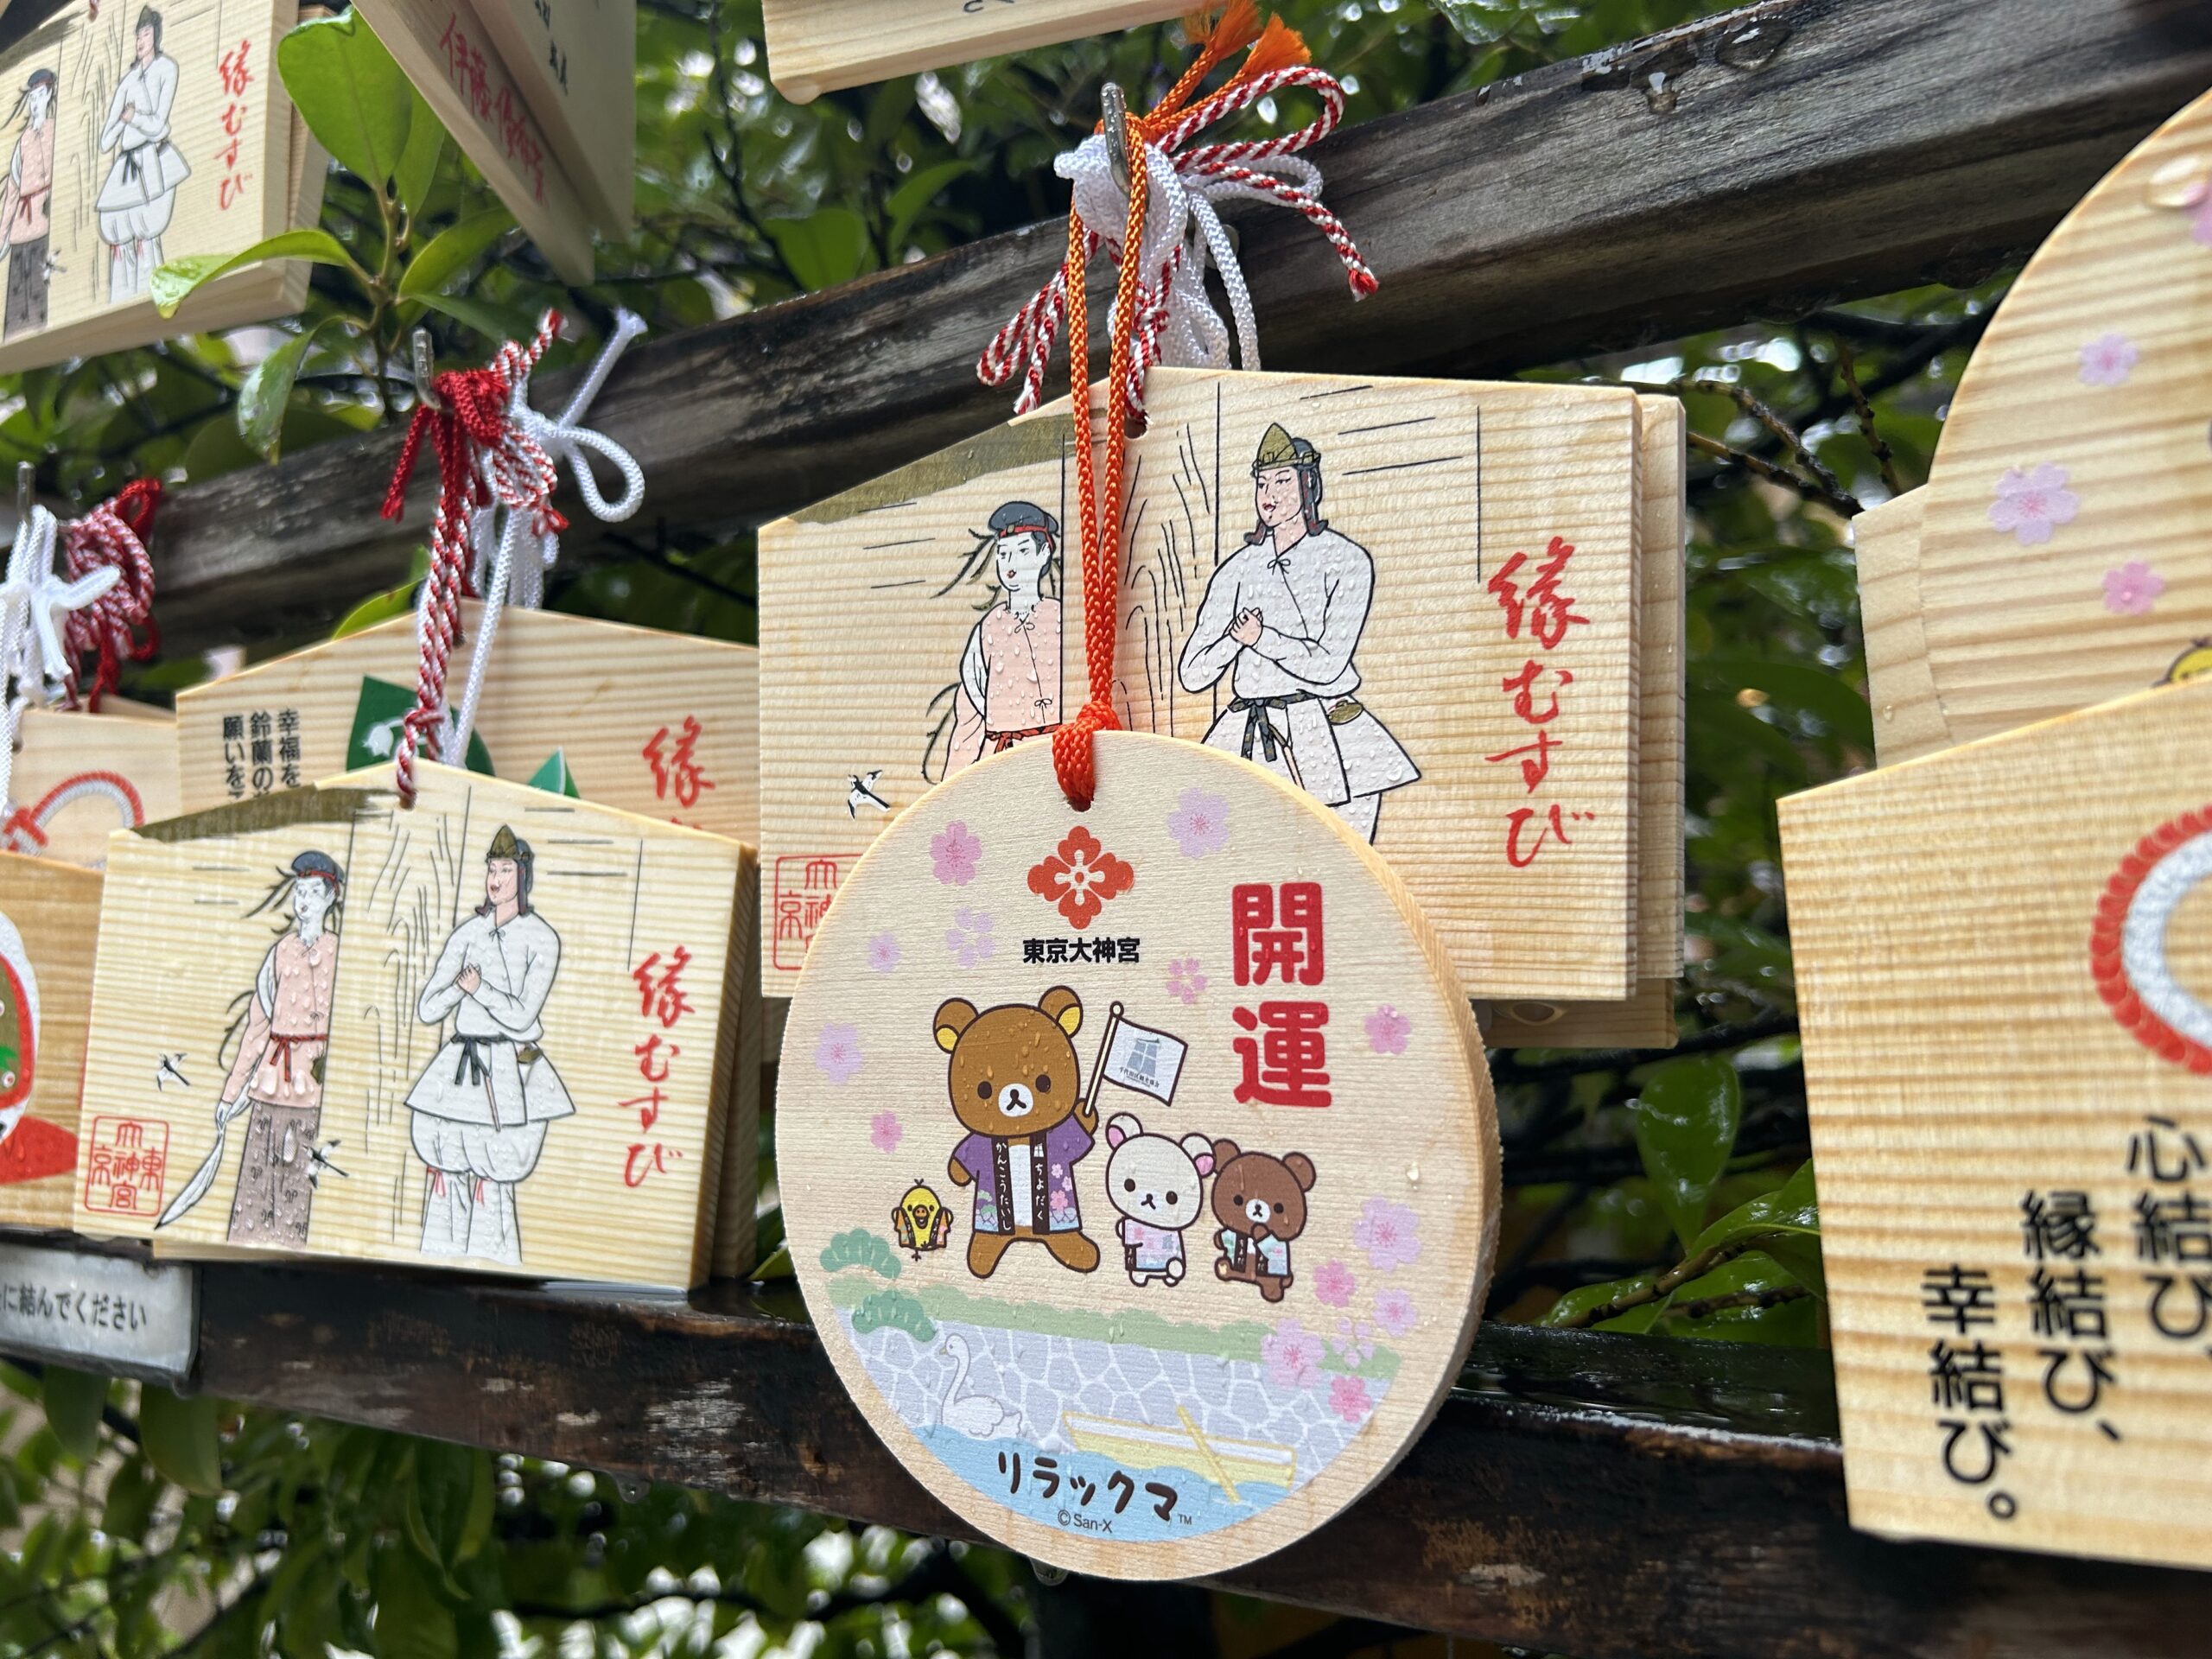 縁むすび
幸福を
鈴蘭の
願いを
縁
縁むすび
東京大神宮
に結んでください
縁むすび
東京大神宮
開運
ちよだく
かんこうたいし
千代田区観光協会
リラックマ™
©San-X
心結び、
縁結び、
幸結び。